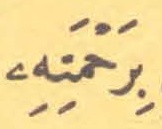 بِرَحْمَتِهِ،